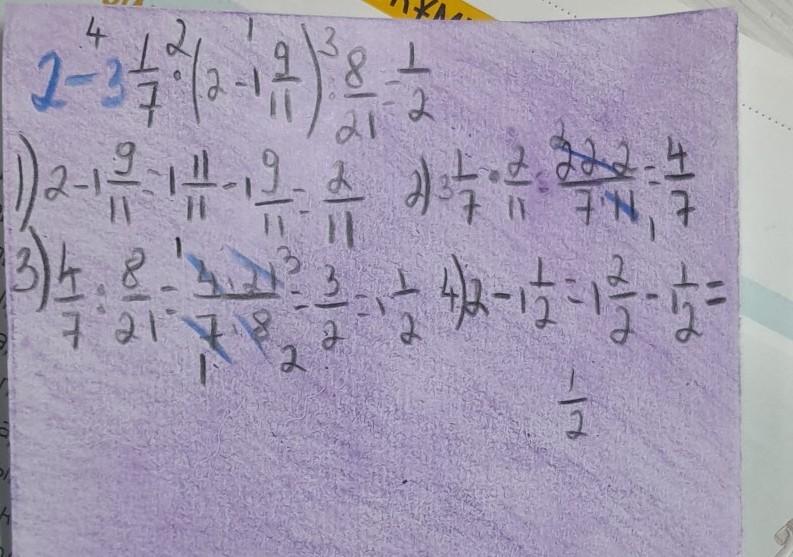 2 - 3 1/7 · (2 - 1 9/11) : 8/21 = 1/2
1) 2 - 1 9/11 = 1 11/11 - 1 9/11 = 2/11 2) 3 1/7 · 2/11 = 22·2/7·11 = 4/7
3) 4/7 : 8/21 = 4·21/7·8 = 3/2 = 1 1/2 4) 2 - 1 1/2 = 1 2/2 - 1 1/2 =
1/2